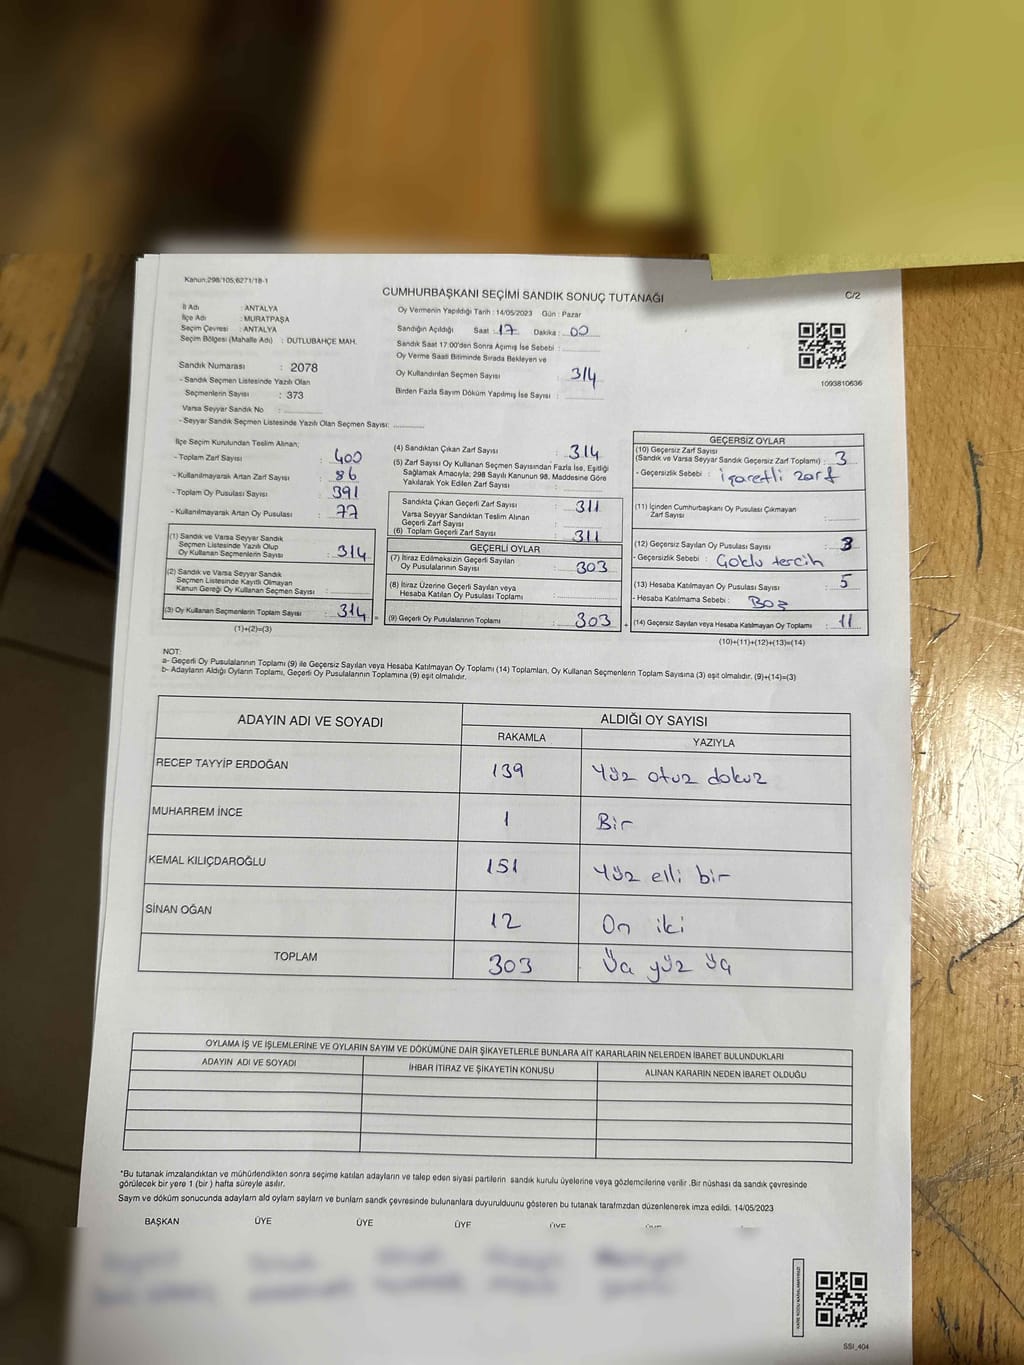 Kanun:298/105;6271/18-1
CUMHURBAŞKANI SEÇİMİ SANDIK SONUÇ TUTANAĞI
C/2
İl Adı : ANTALYA
İlçe Adı : MURATPAŞA
Seçim Çevresi : ANTALYA
Seçim Bölgesi (Mahalle Adı) : DUTLUBAHÇE MAH.
Sandık Numarası : 2078
- Sandık Seçmen Listesinde Yazılı Olan
Seçmenlerin Sayısı : 373
Varsa Seyyar Sandık No :
- Seyyar Sandık Seçmen Listesinde Yazılı Olan Seçmen Sayısı:
Oy Vermenin Yapıldığı Tarih : 14/05/2023 Gün : Pazar
Sandığın Açıldığı Saat : 17 Dakika : 00
Sandık Saat 17:00'den Sonra Açımış İse Sebebi :
Oy Verme Saati Bitiminde Sırada Bekleyen ve
Oy Kullandırılan Seçmen Sayısı : 314
Birden Fazla Sayım Döküm Yapılmış İse Sayısı :
1093810636
İlçe Seçim Kurulundan Teslim Alınan;
- Toplam Zarf Sayısı : 400
- Kullanılmayarak Artan Zarf Sayısı : 86
- Toplam Oy Pusulası Sayısı : 391
- Kullanılmayarak Artan Oy Pusulası : 77
(1) Sandık ve Varsa Seyyar Sandık
Seçmen Listesinde Yazılı Olup
Oy Kullanan Seçmenlerin Sayısı : 314
(2) Sandık ve Varsa Seyyar Sandık
Seçmen Listesinde Kayıtlı Olmayan
Kanun Gereği Oy Kullanan Seçmen Sayısı :
(3) Oy Kullanan Seçmenlerin Toplam Sayısı : 314 =
(1)+(2)=(3)
(4) Sandıktan Çıkan Zarf Sayısı : 314
(5) Zarf Sayısı Oy Kullanan Seçmen Sayısından Fazla İse, Eşitliği
Sağlamak Amacıyla; 298 Sayılı Kanunun 98. Maddesine Göre
Yakılarak Yok Edilen Zarf Sayısı :
Sandıkta Çıkan Geçerli Zarf Sayısı : 311
Varsa Seyyar Sandıktan Teslim Alınan
Geçerli Zarf Sayısı :
(6) Toplam Geçerli Zarf Sayısı : 311
GEÇERLİ OYLAR
(7) İtiraz Edilmeksizin Geçerli Sayılan
Oy Pusulalarının Sayısı : 303
(8) İtiraz Üzerine Geçerli Sayılan veya
Hesaba Katılan Oy Pusulası Toplamı :
(9) Geçerli Oy Pusulalarının Toplamı : 303 +
GEÇERSİZ OYLAR
(10) Geçersiz Zarf Sayısı
(Sandık ve Varsa Seyyar Sandık Geçersiz Zarf Toplamı) : 3
- Geçersizlik Sebebi : işaretli zarf
(11) İçinden Cumhurbaşkanı Oy Pusulası Çıkmayan
Zarf Sayısı :
(12) Geçersiz Sayılan Oy Pusulası Sayısı : 3
-Geçersizlik Sebebi : Çoklu tercih
(13) Hesaba Katılmayan Oy Pusulası Sayısı : 5
- Hesaba Katılmama Sebebi : Boş
(14) Geçersiz Sayılan veya Hesaba Katılmayan Oy Toplamı : 11
(10)+(11)+(12)+(13)=(14)
NOT:
a- Geçerli Oy Pusulalarının Toplamı (9) ile Geçersiz Sayılan veya Hesaba Katılmayan Oy Toplamı (14) Toplamları, Oy Kullanan Seçmenlerin Toplam Sayısına (3) eşit olmalıdır. (9)+(14)=(3)
b- Adayların Aldığı Oyların Toplamı, Geçerli Oy Pusulalarının Toplamına (9) eşit olmalıdır.
ADAYIN ADI VE SOYADI ALDIĞI OY SAYISI
RAKAMLA YAZIYLA
RECEP TAYYİP ERDOĞAN 139 Yüz otuz dokuz
MUHARREM İNCE 1 Bir
KEMAL KILIÇDAROĞLU 151 Yüz elli bir
SİNAN OĞAN 12 On iki
TOPLAM 303 Üç yüz üç
OYLAMA İŞ VE İŞLEMLERİNE VE OYLARIN SAYIM VE DÖKÜMÜNE DAİR ŞİKAYETLERLE BUNLARA AİT KARARLARIN NELERDEN İBARET BULUNDUKLARI
ADAYIN ADI VE SOYADI İHBAR İTİRAZ VE ŞİKAYETİN KONUSU ALINAN KARARIN NEDEN İBARET OLDUĞU
*Bu tutanak imzalandıktan ve mühürlendikten sonra seçime katılan adayların ve talep eden siyasi partilerin sandık kurulu üyelerine veya gözlemcilerine verilir .Bir nüshası da sandık çevresinde
görülecek bir yere 1 (bir ) hafta süreyle asılır.
Sayım ve döküm sonucunda adayların ald oyların sayıları ve bunların sandk çevresinde bulunanlara duyurulduunu gösteren bu tutanak tarafmzdan düzenlenerek imza edildi. 14/05/2023
BAŞKAN ÜYE ÜYE ÜYE ÜYE ÜYE
SSI_404